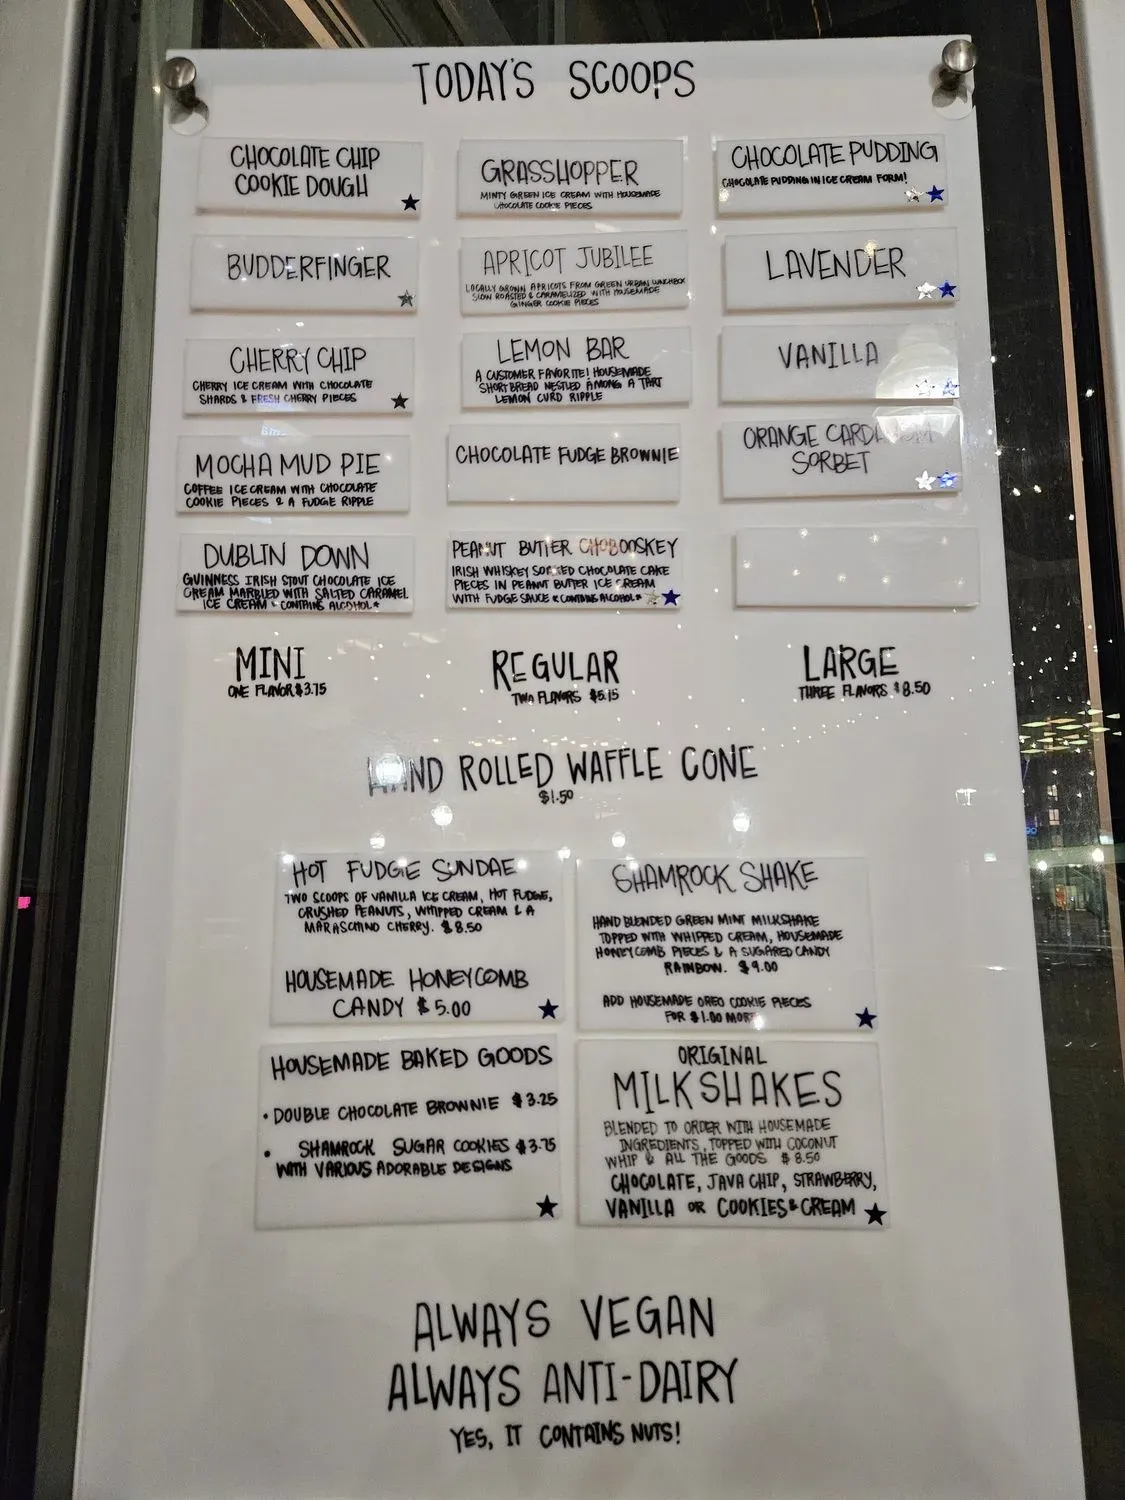 TODAY'S SCOOPS
CHOCOLATE CHIP
COOKIE DOUGH
BUDDERFINGER
CHERRY CHIP
CHERRY ICE CREAM WITH CHOCOLATE
SHARDS & FRESH CHERRY PIECES
MOCHA MUD PIE
COFFEE ICE CREAM WITH CHOCOLATE
COOKIE PIECES & A FUDGE RIPPLE
DUBLIN DOWN
GUINNESS IRISH STOUT CHOCOLATE ICE
CREAM MARBLED WITH SALTED CARAMEL
ICE CREAM * CONTAINS ALCOHOL*
GRASSHOPPER
MINTY GREEN ICE CREAM WITH HOUSEMADE
CHOCOLATE COOKIE PIECES
APRICOT JUBILEE
LOCALLY GROWN APRICOTS FROM GREEN URBAN LUNCHBOX
SLOW ROASTED & CARAMELIZED WITH HOUSEMADE
GINGER COOKIE PIECES
LEMON BAR
A CUSTOMER FAVORITE! HOUSEMADE
SHORTBREAD NESTLED AMONG A TART
LEMON CURD RIPPLE
CHOCOLATE FUDGE BROWNIE
PEANUT BUTTER CHOBOOSKEY
IRISH WHISKEY SOAKED CHOCOLATE CAKE
PIECES IN PEANUT BUTTER ICE CREAM
WITH FUDGE SAUCE * CONTAINS ALCOHOL*
CHOCOLATE PUDDING
CHOCOLATE PUDDING IN ICE CREAM FORM!
LAVENDER
VANILLA
ORANGE CARDAMOM
SORBET
MINI
ONE FLAVOR $3.75
REGULAR
TWO FLAVORS
LARGE
THREE FLAVORS $8.50
HAND ROLLED WAFFLE CONE
$1.50
HOT FUDGE SUNDAE
TWO SCOOPS OF VANILLA ICE CREAM, HOT FUDGE,
CRUSHED PEANUTS, WHIPPED CREAM & A
MARASCHINO CHERRY. $8.50
HOUSEMADE HONEYCOMB
CANDY $5.00
SHAMROCK SHAKE
HAND BLENDED GREEN MINT MILKSHAKE
TOPPED WITH WHIPPED CREAM, HOUSEMADE
HONEYCOMB PIECES & A SUGARED CANDY
RAINBOW. $9.00
ADD HOUSEMADE OREO COOKIE PIECES
FOR $1.00 MORE
HOUSEMADE BAKED GOODS
• DOUBLE CHOCOLATE BROWNIE $3.25
• SHAMROCK SUGAR COOKIES $3.75
WITH VARIOUS ADORABLE DESIGNS
ORIGINAL
MILKSHAKES
BLENDED TO ORDER WITH HOUSEMADE
INGREDIENTS, TOPPED WITH COCONUT
WHIP & ALL THE GOODS $8.50
CHOCOLATE, JAVA CHIP, STRAWBERRY,
VANILLA OR COOKIES & CREAM
ALWAYS VEGAN
ALWAYS ANTI-DAIRY
YES, IT CONTAINS NUTS!